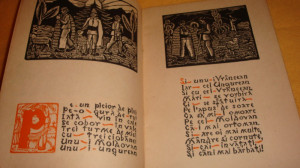 Pe-un picior de plai
Pe-o gură de rai
Iată vin în cale
Se cobor la vale
Trei turme de miei
Cu trei ciobănei
Unu-i Moldovan
Unu-i Ungurean
Şi unu-i Vrâncean
Iar cel Ungurean
Şi cu cel Vrâncean
Mări se vorbiră
Ei se sfătuiră
Pe l'apus de soare
Ca să mi-l omoare
Pe cel Moldovan
Că-i mai ortoman
Ş'are oi mai multe
Mândre şi cornute
Şi cai învăţaţi
Şi câni mai bărbaţi